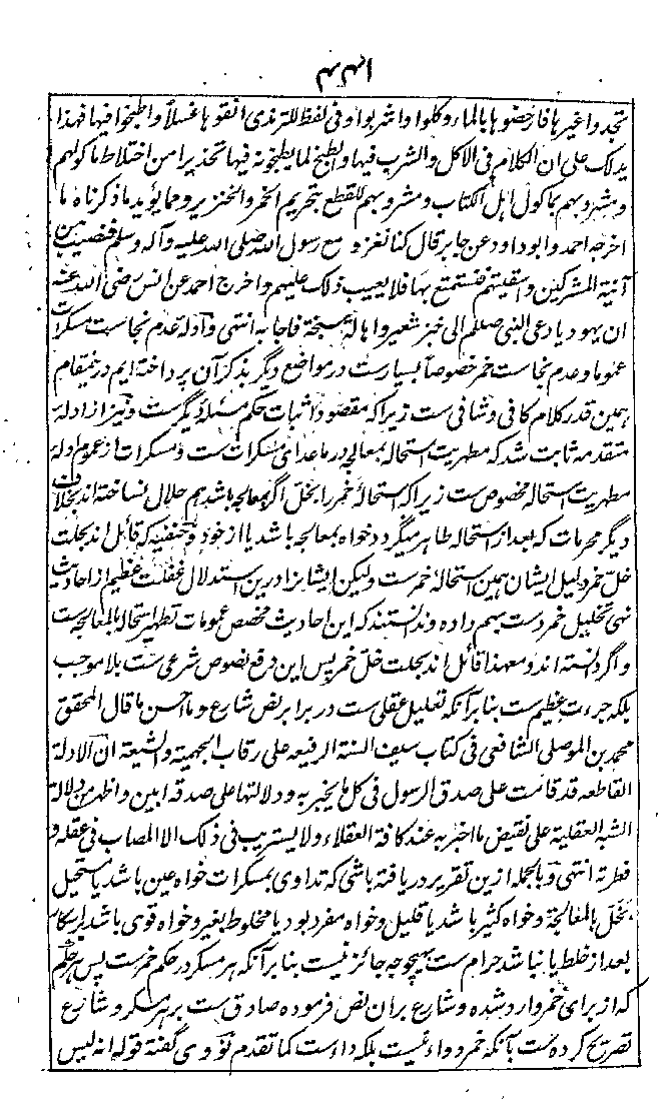 ۴۴۱
تجدوا غیرها فارحضوها بالماء و کلوا و اشربوا و فی لفظ للترمذی انقوها غسلاً و اطبخوا فیها فهذا
یدلک علی ان الکلام فی الاکل والشرب فیها والطبخ لما یطبخونه فیها تحذیرا من اختلاط ماکولهم
و مشروبهم بماکول اهل الکتاب و مشروبهم للقطع بتحریم الخمر والخنزیر و مما یؤید ما ذکرناه ما
اخرجه احمد و ابو داود عن جابر قال کنا نغزو مع رسول الله صلی الله علیه و آله و سلم فنصیب من
آنیة المشرکین و اسقیتهم فنستمتع بها فلا یعیب ذلک علیهم و اخرج احمد عن انس رضی الله عنه
ان یهودیا دعی النبی صلعم الی خبز شعیر و اهالة سنخة فاجابه انتهی و ادلهٔ عدم نجاست مسکرات
عموما و عدم نجاست خمر خصوصاً بسیارست در مواضع دیگر بذکر آن پرداخته ایم درینمقام
همین قدر کلام کافی و شافی ست زیراکه مقصود اثبات حکم مسئلهٔ دیگرست و نیز از ادلهٔ
متقدمه ثابت شد که مطهریت استحاله بمعالجه در ماعدای مسکرات ست و مسکرات از عموم ادلهٔ
مطهریت استحاله مخصوص ست زیراکه استحالهٔ خمر را بخل اگر بمعالجه باشد هم حلال نساخته اند بخلاف
دیگر محرمات که بعد از استحاله طاهر میگردد خواه بمعالجه باشد یا از خود و حنفیه که قائل اند بحلت
خل خمر دلیل ایشان همین استحالهٔ خمرست ولیکن ایشانرا درین استدلال غفلت عظیم از احادیث
نهی تخلیل خمر دست بهم داده و ندانستند که این احادیث مخصص عمومات تطهیر استحاله بالمعالجه ست
و اگر دانسته اند و معهذا قائل اند بحلت خل خمر پس این دفع نصوص شرعی ست بلا موجب
بلکه جرءت عظیم ست بنا برآنکه تعلیل عقلی ست در برابر نص شارع و ما احسن ما قال المحقق
محمد بن الموصلی الشافعی فی کتاب سیف السنة الرفیعه علی رقاب الجهمیة والشیعة ان الادلة
القاطعه قد قامت علی صدق الرسول فی کل ما یخبر به و دلالتها علی صدقه ابین و اظهر من دلالة
الشبه العقلیة علی نقیض ما اخبر به عند کافة العقلاء و لا یستریب فی ذلک الا المصاب فی عقله و
فطرته انتهی و بالجمله ازین تقریر دریافته باشی که تداوی بمسکرات خواه عین باشد یا مستحیل
بخل بالمعالجة و خواه کثیر باشد یا قلیل و خواه مفرد بود یا مخلوط بغیر و خواه قوی باشد اسکار
بعد از خلط یا نباشد حرام ست بهیچوجه جائز نیست بنا برآنکه هر مسکر در حکم خمرست پس هر حکم
که از برای خمر وارد شده و شارع بران نص فرموده صادق ست بر هر مسکر و شارع
تصریح کرده ست بآنکه خمر دواء نیست بلکه داء ست کما تقدم نووی گفته قوله انه لیس